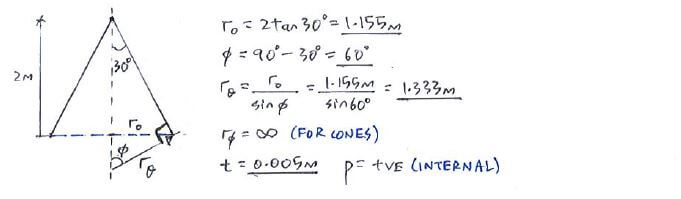 2M
30°
r₀
φ
r_θ
r₀ = 2tan30° = 1.155M
φ = 90° - 30° = 60°
r_θ = r₀ / sinφ = 1.155M / sin60° = 1.333M
r_φ = ∞ (FOR CONES)
t = 0.005M p = +VE (INTERNAL)